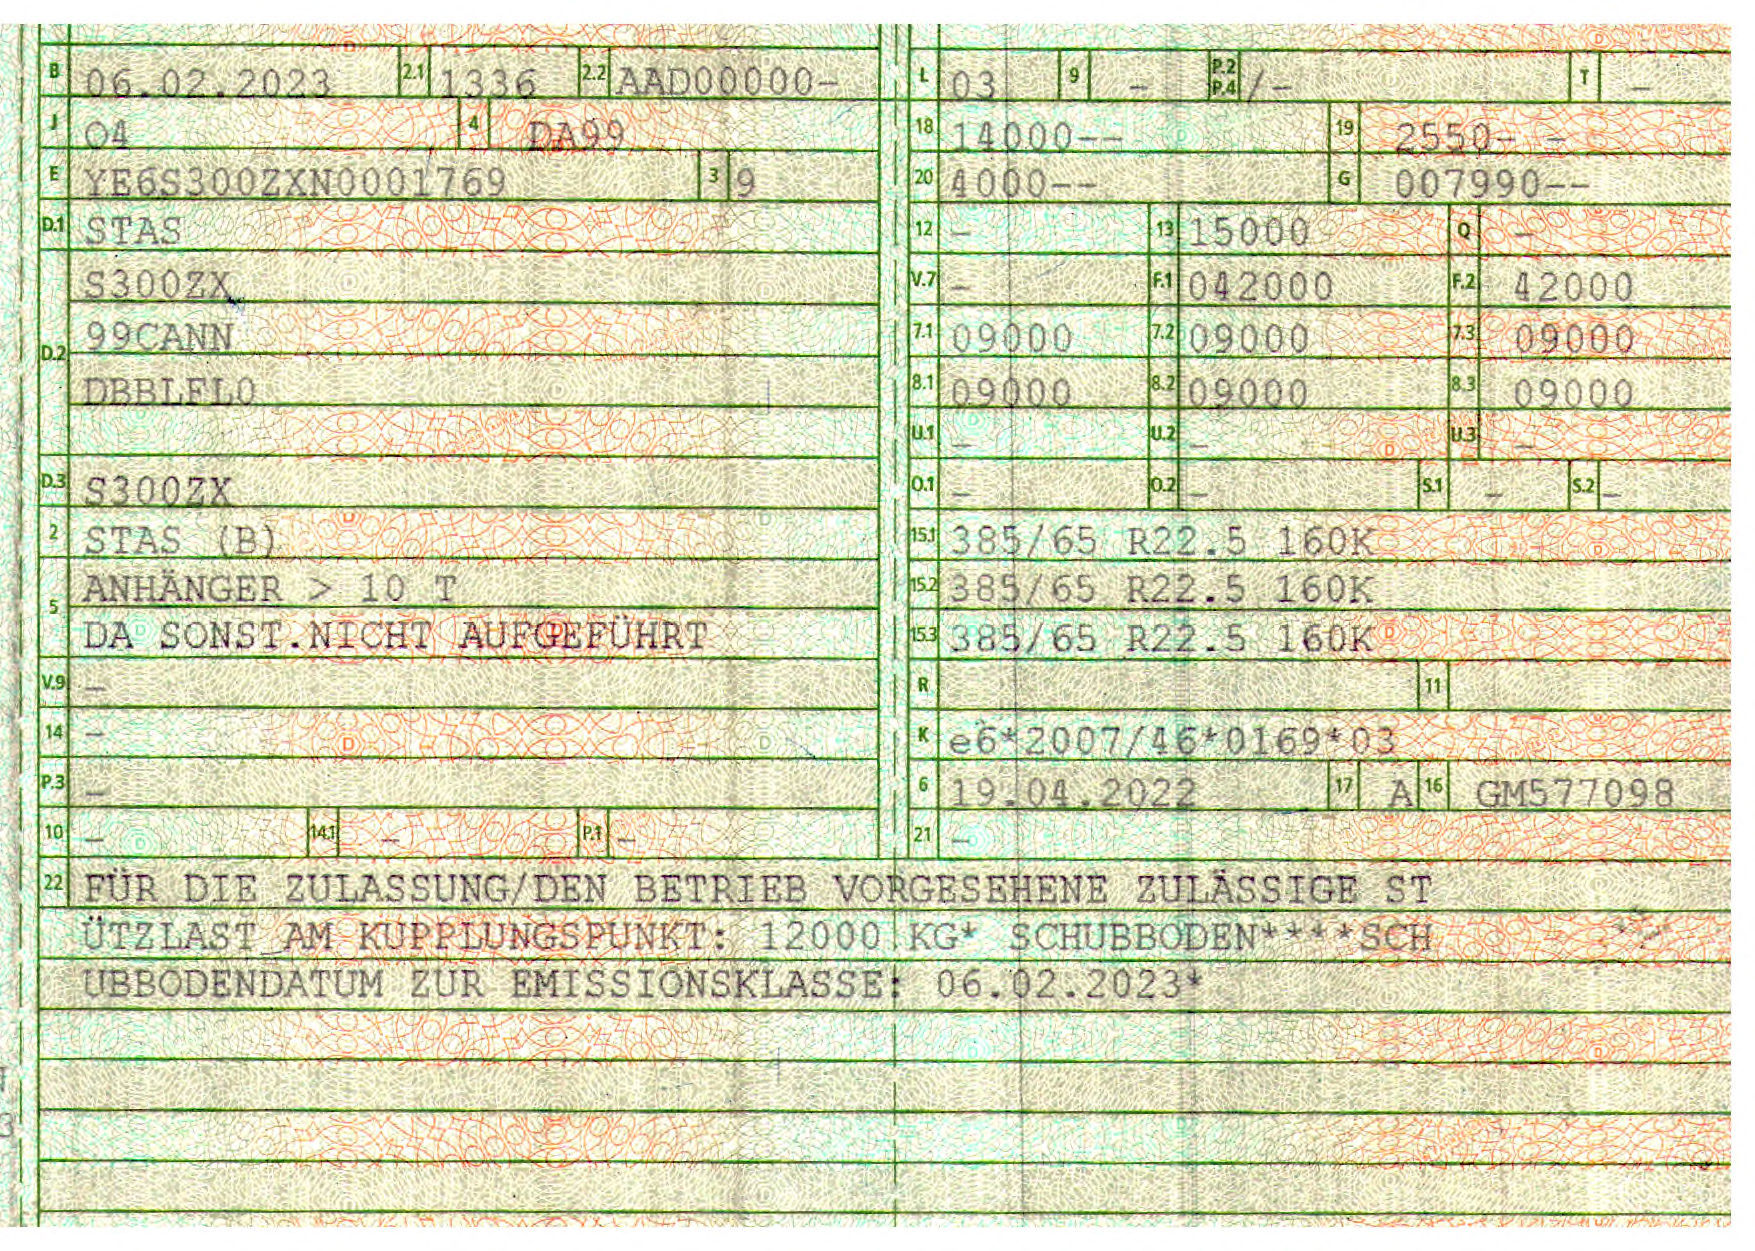 B 06.02.2023 2.1 1336 2.2 AAD00000-
J 04 4 DA99
E YE6S300ZXN0001769 3 9
D.1 STAS
S300ZX
D.2 99CANN
DBBLFL0
D.3 S300ZX
2 STAS (B)
5 ANHÄNGER > 10 T
DA SONST.NICHT AUFGEFÜHRT
V.9 -
14 -
P.3 -
10 - 14.1 - P.1 -
L 03 9 - P.2 P.4 /- T -
18 14000-- 19 2550- -
20 4000-- G 007990--
12 - 13 15000 Q -
V.7 - F.1 042000 F.2 42000
7.1 09000 7.2 09000 7.3 09000
8.1 09000 8.2 09000 8.3 09000
U.1 - U.2 - U.3 -
O.1 - O.2 - S.1 - S.2 -
15.1 385/65 R22.5 160K
15.2 385/65 R22.5 160K
15.3 385/65 R22.5 160K
R 11
K e6*2007/46*0169*03
6 19.04.2022 17 A 16 GM577098
21 -
22 FÜR DIE ZULASSUNG/DEN BETRIEB VORGESEHENE ZULÄSSIGE ST
ÜTZLAST AM KUPPLUNGSPUNKT: 12000 KG* SCHUBBODEN****SCH
UBBODENDATUM ZUR EMISSIONSKLASSE: 06.02.2023*